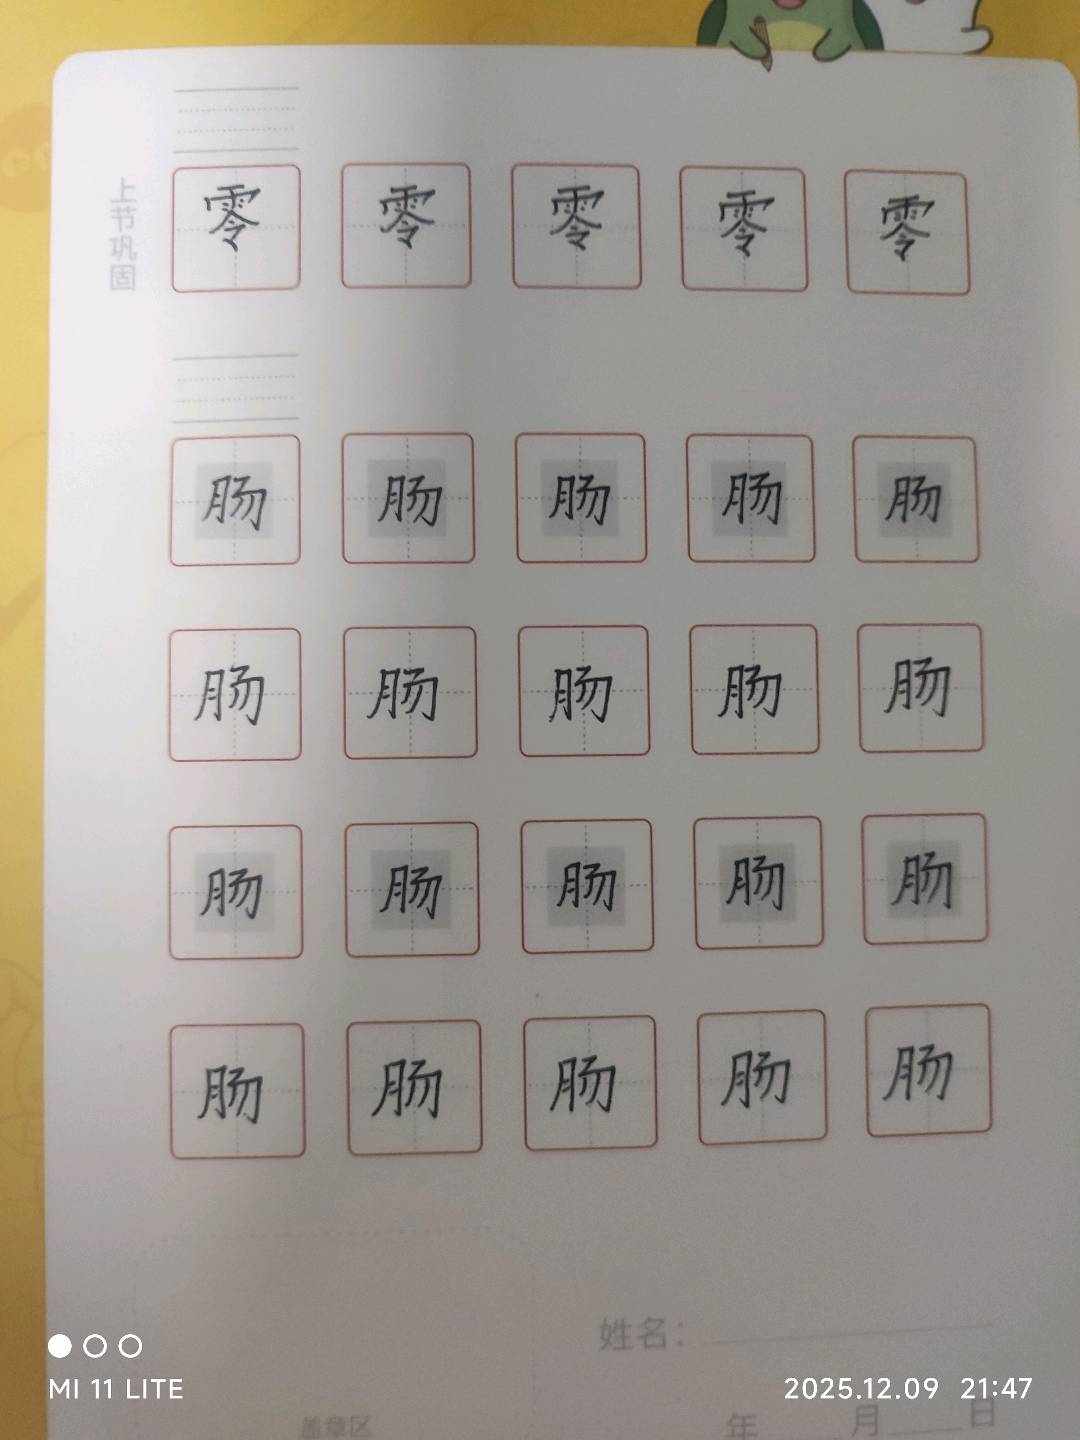 上节巩固
零 零 零 零 零
肠 肠 肠 肠 肠
肠 肠 肠 肠 肠
肠 肠 肠 肠 肠
肠 肠 肠 肠 肠
姓名：
盖章区
年 月 日
MI 11 LITE
2025.12.09 21:47